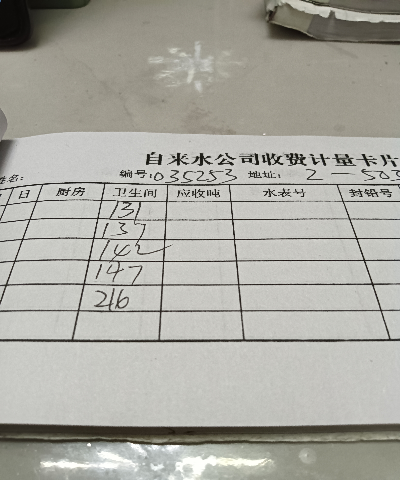 自来水公司收费计量卡片
姓名: 编号:035253 地址: 2-503
日 厨房 卫生间 应收吨 水表号 封铅号
131
137
142
147
216